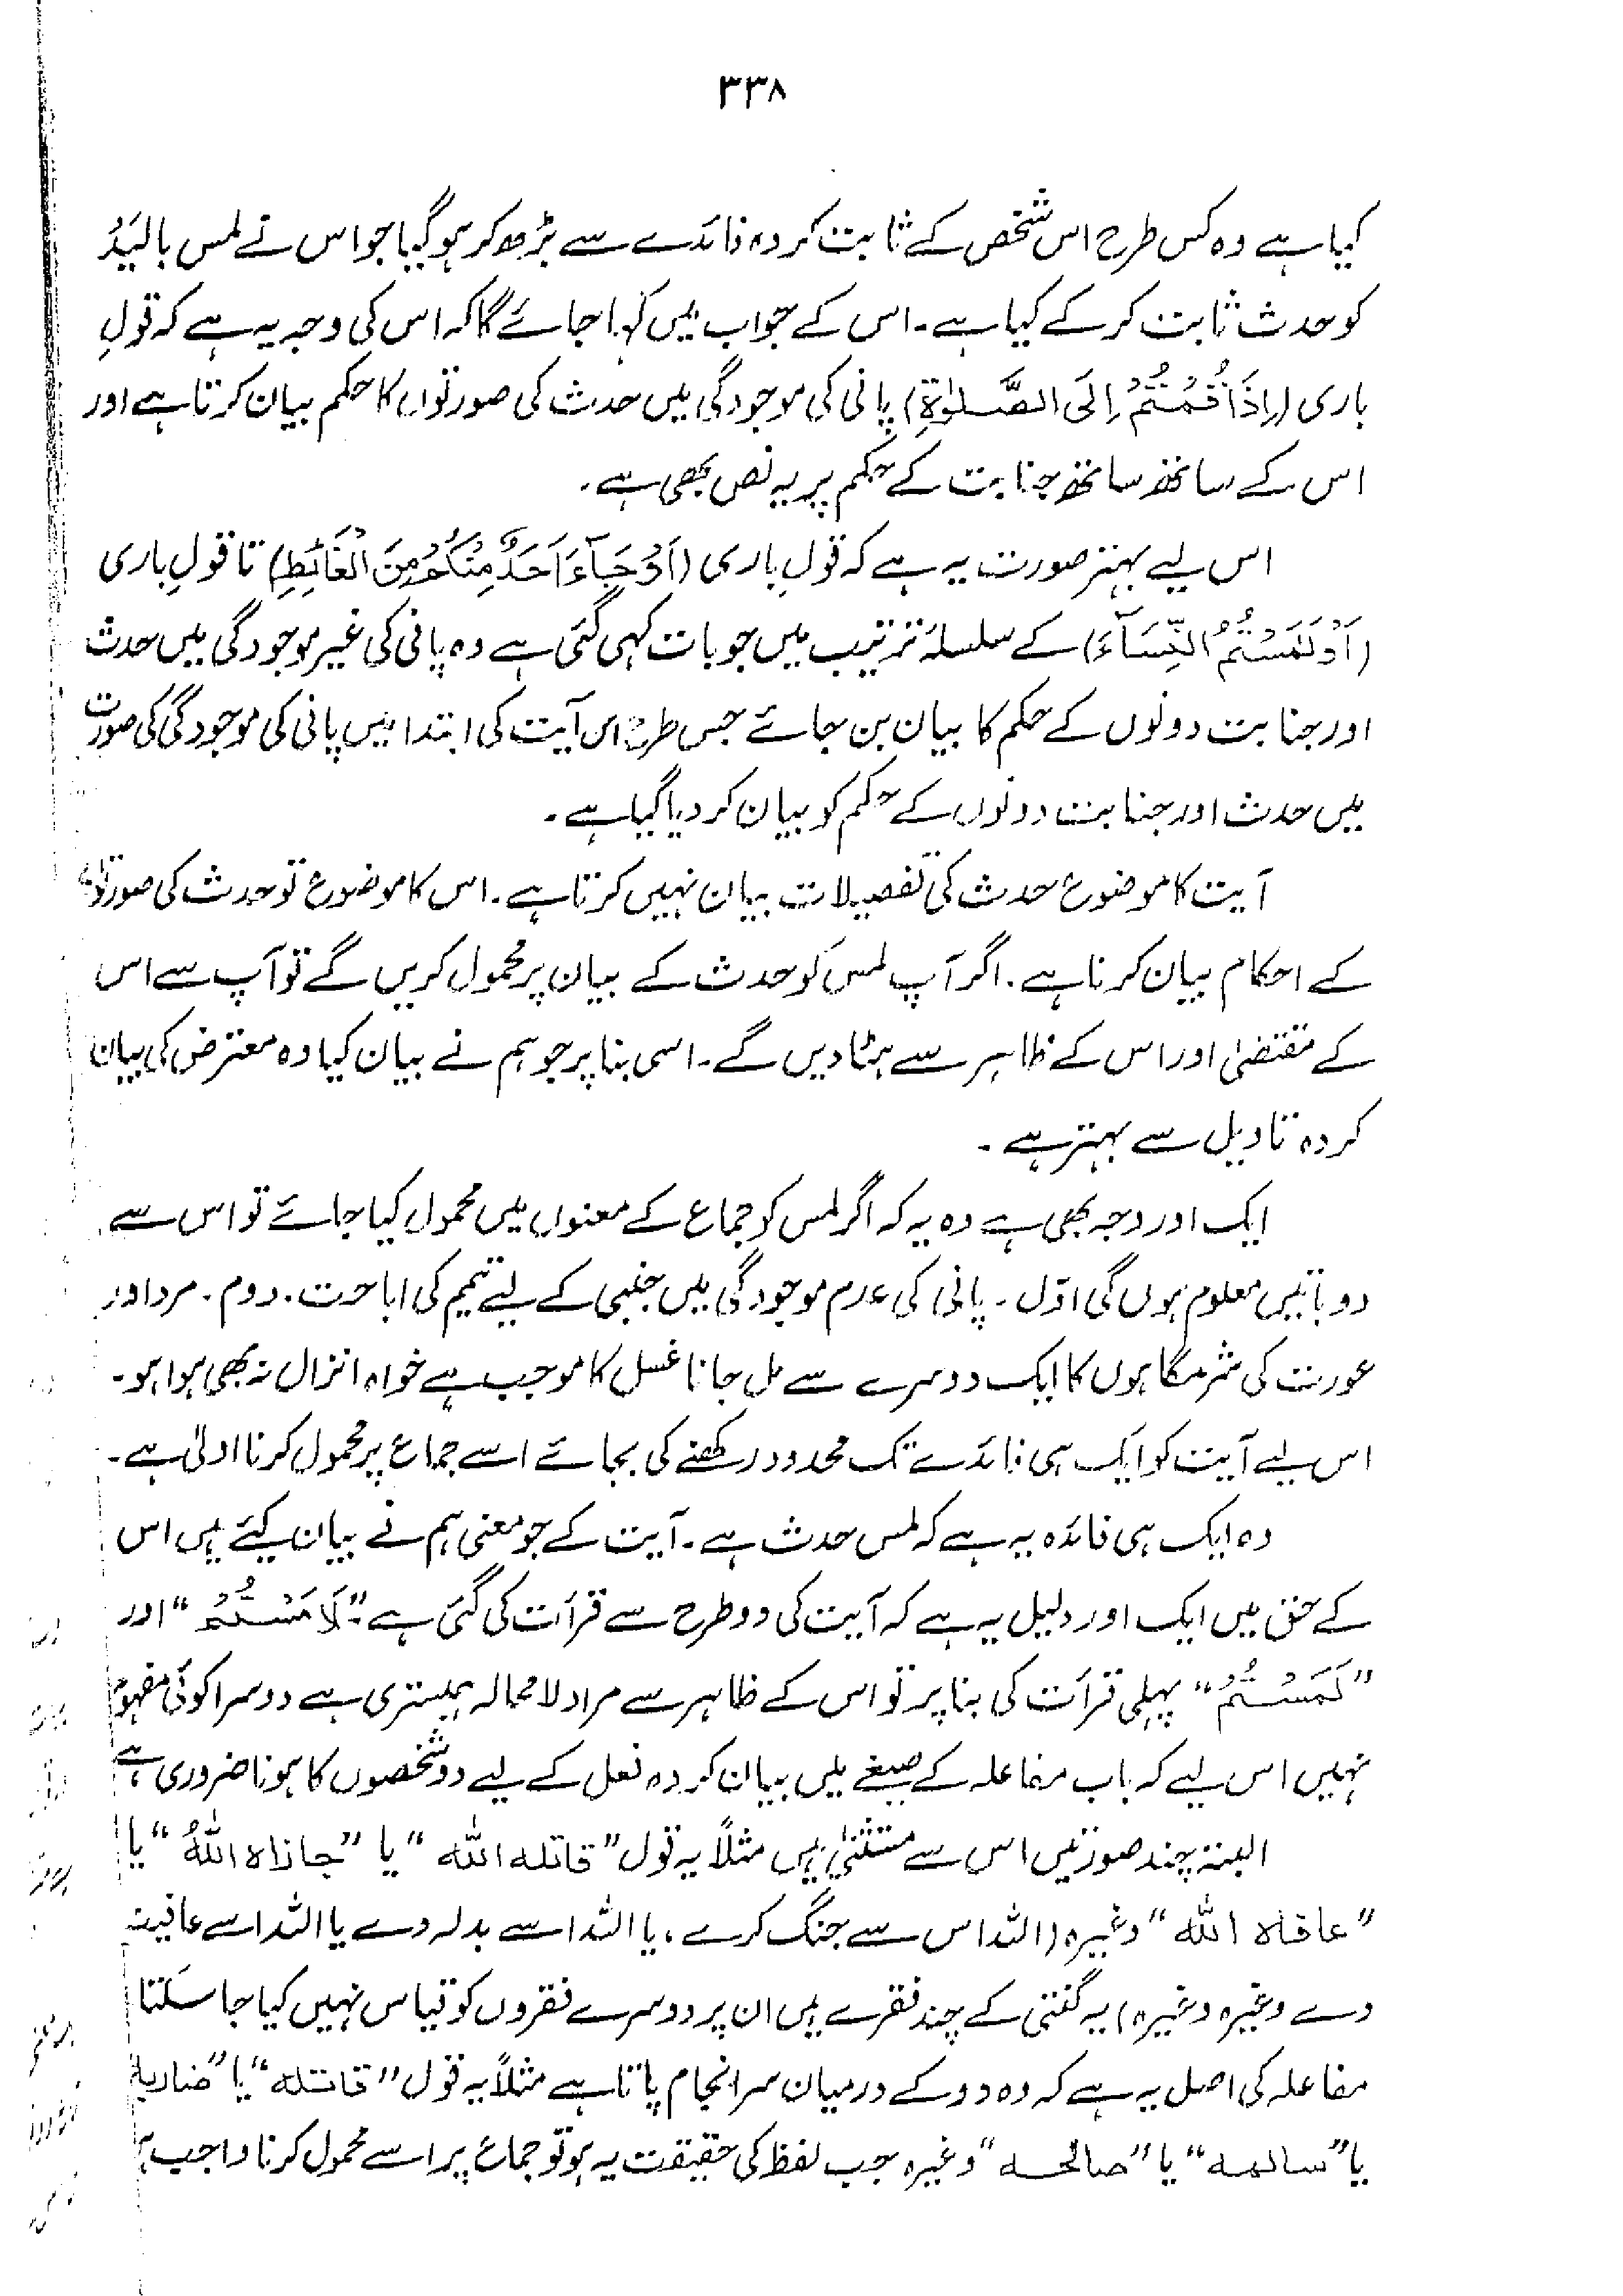 ۳۳۸
کیا ہے وہ کس طرح اس شخص کے ثابت کردہ فائدے سے بڑھ کر ہو گیا جو اس نے لمس بالیَدُ
کو حدث ثابت کر کے کیا ہے۔ اس کے جواب میں کہا جائے گا کہ اس کی وجہ یہ ہے کہ قولِ
باری (اِذَا قُمْتُمْ اِلَی الصَّلٰوۃِ) پانی کی موجودگی میں حدث کی صورتوں کا حکم بیان کرتا ہے اور
اس کے ساتھ ساتھ جنابت کے حکم پر یہ نص بھی ہے۔
اس لیے بہتر صورت یہ ہے کہ قولِ باری (اَوْ جَآءَ اَحَدٌ مِّنْکُمْ مِنَ الْغَائِطِ) تا قولِ باری
(اَوْ لٰمَسْتُمُ النِّسَآءَ) کے سلسلۂ ترتیب میں جو بات کہی گئی ہے وہ پانی کی غیر موجودگی میں حدث
اور جنابت دونوں کے حکم کا بیان بن جائے جس طرح اس آیت کی ابتدا میں پانی کی موجودگی کی صورت
میں حدث اور جنابت دونوں کے حکم کو بیان کر دیا گیا ہے۔
آیت کا موضوع حدث کی تفصیلات بیان نہیں کرتا ہے۔ اس کا موضوع تو حدث کی صورتوں
کے احکام بیان کرنا ہے۔ اگر آپ لمس کو حدث کے بیان پر محمول کریں گے تو آپ سے اس
کے مقتضیٰ اور اس کے ظاہر سے ہٹا دیں گے۔ اسی بنا پر جو ہم نے بیان کیا وہ معترض کی بیان
کردہ تاویل سے بہتر ہے۔
ایک اور وجہ بھی ہے وہ یہ کہ اگر لمس کو جماع کے معنوں میں محمول کیا جائے تو اس سے
دو باتیں معلوم ہوں گی اوّل۔ پانی کی عدم موجودگی میں جنبی کے لیے تیمم کی اباحت۔ دوم۔ مرد اور
عورت کی شرمگاہوں کا ایک دوسرے سے مل جانا غسل کا موجب ہے خواہ انزال نہ بھی ہوا ہو۔
اس لیے آیت کو ایک ہی فائدے تک محدود رکھنے کی بجائے اسے جماع پر محمول کرنا اولیٰ ہے۔
وہ ایک ہی فائدہ یہ ہے کہ لمس حدث ہے۔ آیت کے جو معنی ہم نے بیان کیئے ہیں اس
کے حق میں ایک اور دلیل یہ ہے کہ آیت کی دو طرح سے قرأت کی گئی ہے۔ "لَامَسْتُمْ" اور
"لَمَسْتُمْ" پہلی قرأت کی بنا پر تو اس کے ظاہر سے مراد لا محالہ ہمبستری ہے دوسرا کوئی مفہوم
نہیں اس لیے کہ باب مفاعلہ کے صیغے میں بیان کردہ فعل کے لیے دو شخصوں کا ہونا ضروری ہے
البتہ چند صورتیں اس سے مستثنیٰ ہیں مثلاً یہ قول "قاتلہ اللّٰہ" یا "جازاہ اللّٰہُ" یا
"عافاہ اللّٰہ" وغیرہ (اللہ اس سے جنگ کرے، یا اللہ اسے بدلہ دے یا اللہ اسے عافیت
دے وغیرہ وغیرہ) یہ گنتی کے چند فقرے ہیں ان پر دوسرے فقروں کو قیاس نہیں کیا جا سکتا
مفاعلہ کی اصل یہ ہے کہ وہ دو کے درمیان سرانجام پاتا ہے مثلاً یہ قول "قاتلہ" یا "ضاربہ
یا "سالمہ" یا "صالحہ" وغیرہ جب لفظ کی حقیقت یہ ہو تو جماع پر اسے محمول کرنا واجب ہے